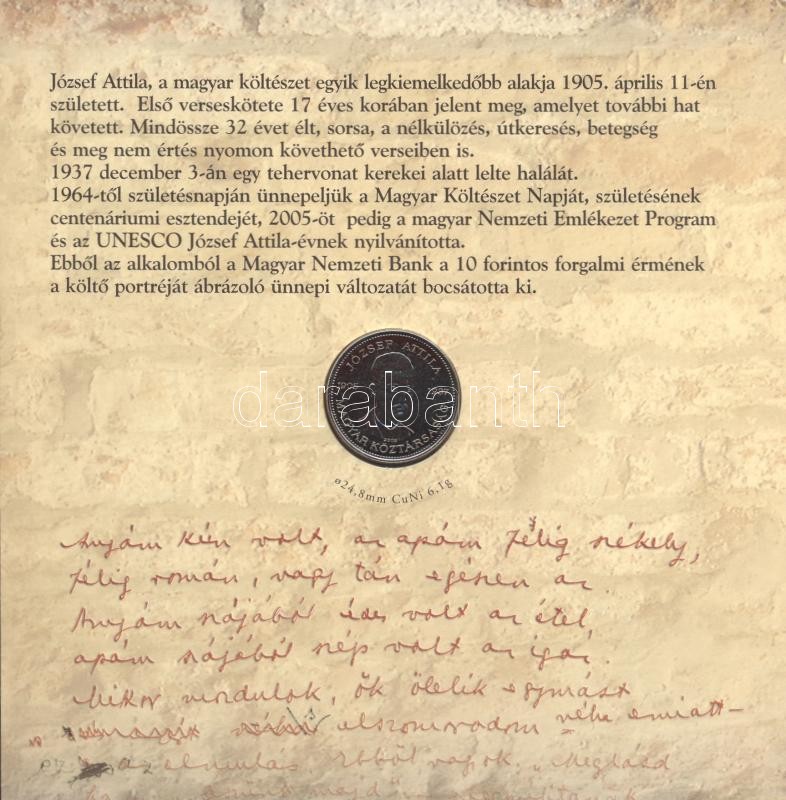 József Attila, a magyar költészet egyik legkiemelkedőbb alakja 1905. április 11-én
született. Első verseskötete 17 éves korában jelent meg, amelyet további hat
követett. Mindössze 32 évet élt, sorsa, a nélkülözés, útkeresés, betegség
és meg nem értés nyomon követhető verseiben is.
1937 december 3-án egy tehervonat kerekei alatt lelte halálát.
1964-től születésnapján ünnepeljük a Magyar Költészet Napját, születésének
centenáriumi esztendejét, 2005-öt pedig a magyar Nemzeti Emlékezet Program
és az UNESCO József Attila-évnek nyilvánította.
Ebből az alkalomból a Magyar Nemzeti Bank a 10 forintos forgalmi érmének
a költő portréját ábrázoló ünnepi változatát bocsátotta ki.
JÓZSEF ATTILA
1905
MAGYAR KÖZTÁRSASÁG
2005
darabanth
ø24,8mm CuNi 6,1g
Anyám kún volt, az apám félig székely,
félig román, vagy tán egészen az.
Anyám szájából édes volt az étel,
apám szájából szép volt az igaz.
Mikor mozdulok, ők ölelik egymást
elszomorodom néha emiatt –
az elmulás. Ebből vagyok. „Meglásd